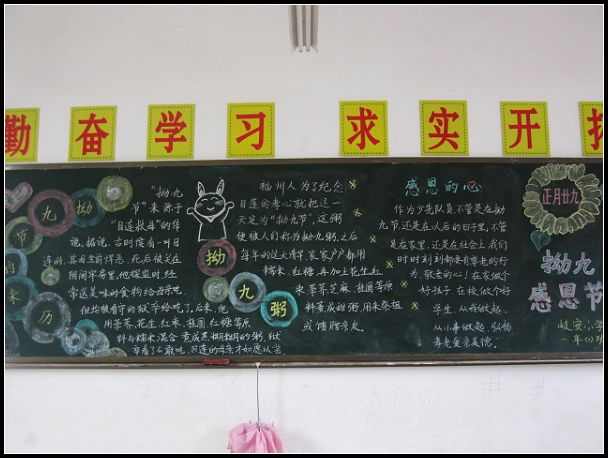 勤奋学习 求实开拓
拗九节的来历
"拗九
节"来源于
"目连救母"的传
说。据说，古时候有一叫目
连的，其母生前
阴间牢房里，他探监时，经
常送美味的食物给母亲吃
但均被看守的狱卒给吃了。后来，他
用荸荠、花生、红枣、桂圆、红糖等原
料与糯米混合，煮成
拗九粥
福州人为了纪念
目连的孝心，就把这一
天定为"拗九节"，这粥
便被人们称为拗九粥。之后
每年的这天清早，家家户户都用
糯米、红糖，再加上花生、红
枣、荸荠、芝麻、桂圆等原
料煮成甜粥，用来祭祖
或馈赠亲友。
感恩的心
作为少先队员，不管是在拗
九节，还是在以后的日子里，不管
是在家里，还是在社会上，我们
时时刻刻都要有尊老的行
为，敬老的心！在家做个
好孩子，在校做个好
学生，从我做起，
从小事做起，弘扬
尊老爱亲美德。
正月廿九
拗九
感恩节